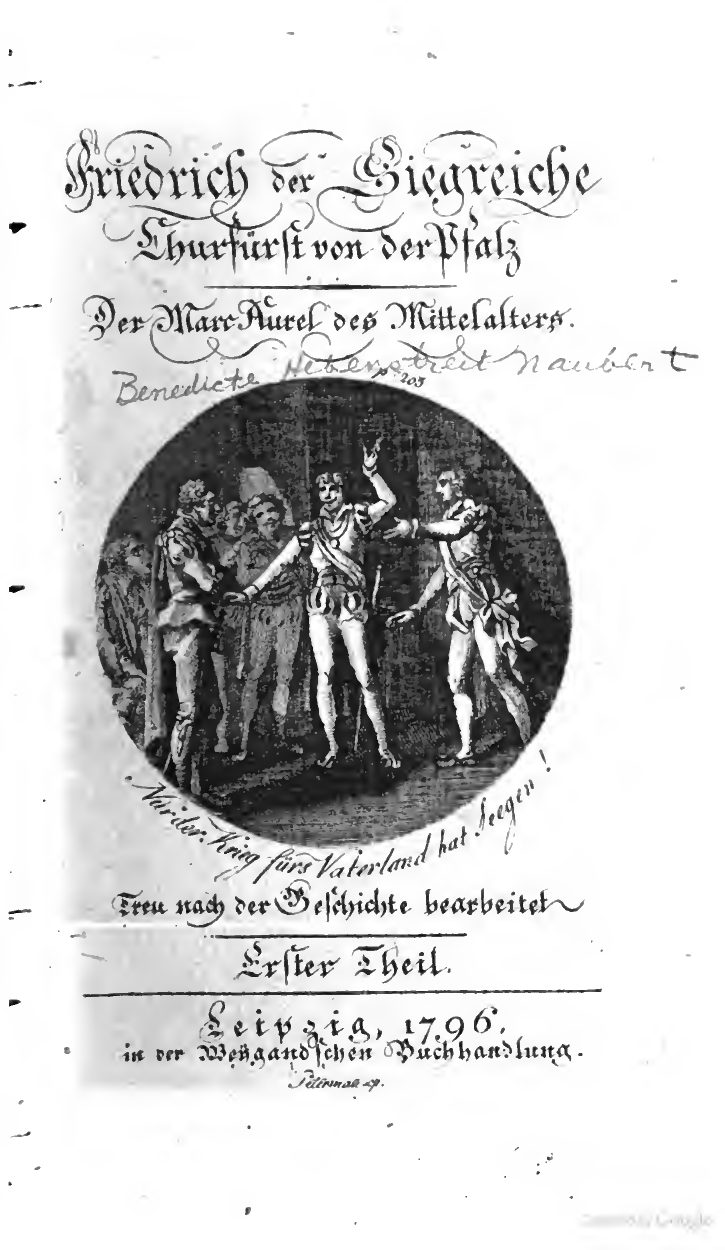 Friedrich der Siegreiche
Churfürst von der Pfalz
Der Marc Aurel des Mittelalters.
Benedicte Hebenstreit Naubert
p. 203
Nur der Krieg fürs Vaterland hat Seegen!
Treu nach der Geschichte bearbeitet
Erster Theil.
Leipzig, 1796.
in der Weygandschen Buchhandlung.
Google